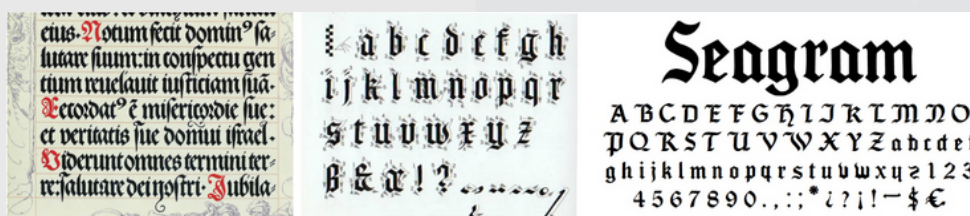 eius. Notum fecit dominꝰ ſa-
lutare ſuum: in conſpectu gen
tium reuelauit iuſticiam ſuā.
Recordatꝰ ē miſericordie ſue:
et veritatis ſue domui iſrael.
Viderunt omnes termini ter-
re: ſalutare dei noſtri. Jubila-
a b c d e f g h
i j k l m n o p q r
s t u v w x y z
ß & æ ! ?
Seagram
A B C D E F G H I J K L M N O
P Q R S T U V W X Y Z a b c d e f
g h i j k l m n o p q r s t u v w x y z 1 2 3
4 5 6 7 8 9 0 . , : ; * ¿ ? ¡ ! – $ €